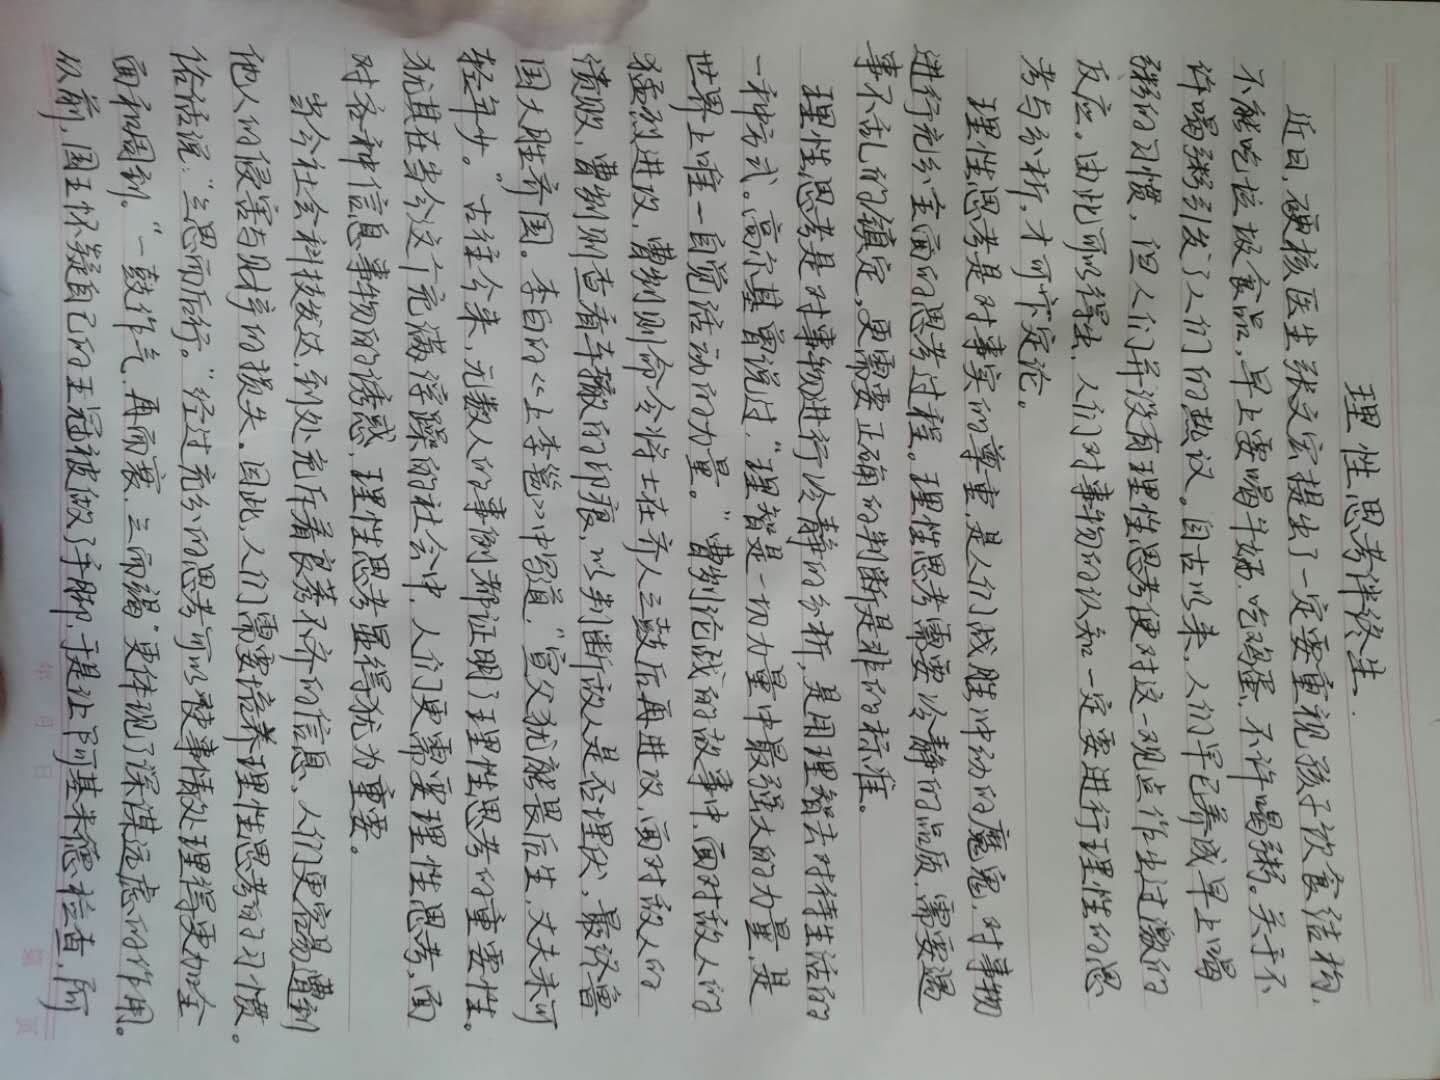 理性思考伴终生.
近日,硬核医生张文宏提出了一定要重视孩子饮食结构,
不能吃垃圾食品,早上要喝牛奶,吃鸡蛋,不许喝粥。关于不
许喝粥引发了人们的热议。自古以来,人们早已养成早上喝
粥的习惯,但人们并没有理性思考便对这一观点作出过激的
反应。由此可以得出,人们对事物的认知一定要进行理性的思
考与分析,才可下定论。
理性思考是对事实的尊重,是人们战胜冲动的魔鬼,对事物
进行充分全面的思考过程。理性思考需要冷静的品质,需要遇
事不乱的镇定,更需要正确的判断是非的标准。
理性思考是对事物进行冷静的分析,是用理智去对待生活的
一种方式。高尔基曾说过,“理智是一切力量中最强大的力量,是
世界上唯一自觉活动的力量。”曹刿论战的故事中,面对敌人的
猛烈进攻,曹刿则命令将士在齐人三鼓后再进攻,面对敌人的
溃败,曹刿则查看车辙的印痕,以判断敌人是否埋伏,最终鲁
国大胜齐国。李白的《上李邕》中写道,“宣父犹能畏后生,丈夫未可
轻年少。”古往今来,无数人的事例都证明了理性思考的重要性。
尤其在当今这个充满浮躁的社会中,人们更需要理性思考,面
对各种信息事物的诱惑,理性思考显得尤为重要。
当今社会科技发达,到处充斥着良莠不齐的信息,人们更容易遭到
他人的侵害与财产的损失。因此,人们需要培养理性思考的习惯。
俗话说:“三思而后行。”经过充分的思考可以使事情处理得更加全
面和周到。“一鼓作气,再而衰,三而竭”更体现了深谋远虑的作用。
从前,国王怀疑自己的王冠被做了手脚,于是让阿基米德检查,阿
年 月 日
第 页